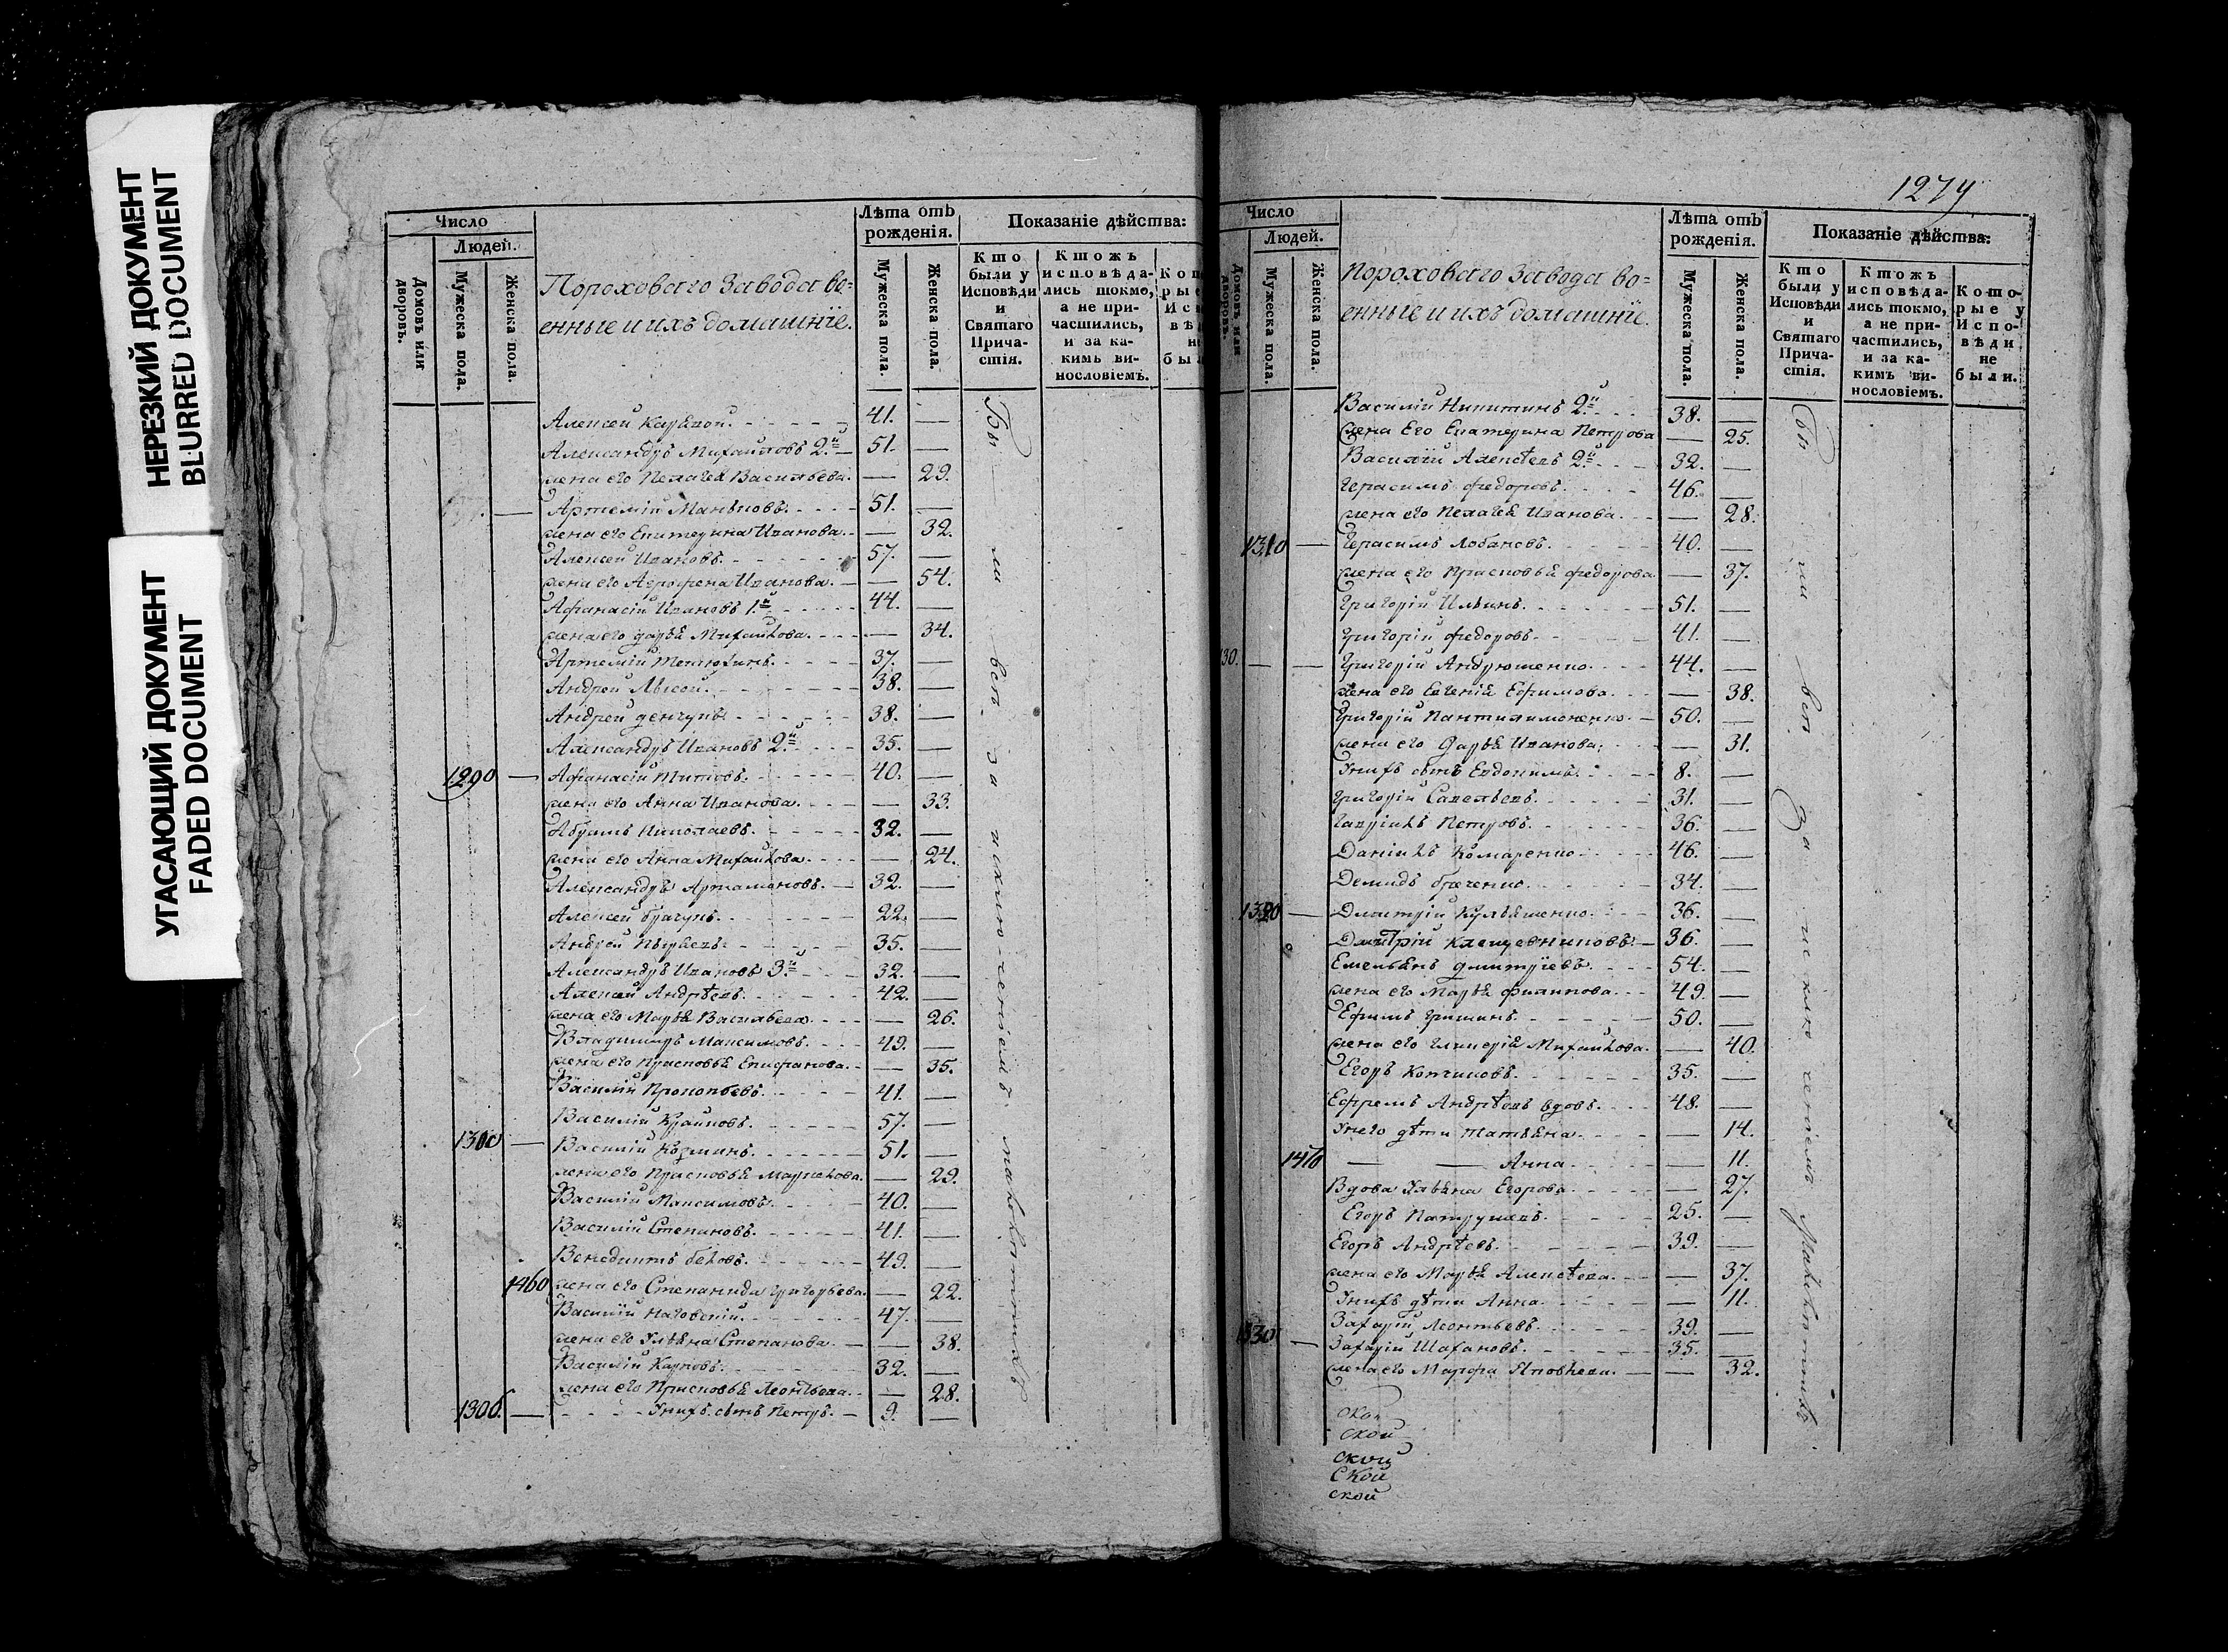 НЕРЕЗКИЙ ДОКУМЕНТ
BLURRED DOCUMENT
УГАСАЮЩИЙ ДОКУМЕНТ
FADED DOCUMENT
Число
Людей.
Домовъ или дворовъ.
Мужеска пола.
Женска пола.
Пороховаго Завода во=
енные и ихъ домашніе.
Лѣта отъ рожденія.
Мужеска пола.
Женска пола.
Показаніе дѣйства:
Кто были у Исповѣди и Святаго Прича-стія.
Ктожъ исповѣда-лись токмо, а не при-частились, и за ка-кимъ ви-нословіемъ.
Алексей 41. —
Александръ Михайловъ 2й 51. —
жена его Пелагея Васильева. — 29.
Артемій 51. —
жена его Екатерина Иванова. — 32.
Алексей Ивановъ. 57. —
жена его Агрофена Иванова. — 54.
Афанасій Ивановъ 1й 44. —
жена его Дарья Михайлова. — 34.
Артемій 37. —
Андрей Лысой. 38. —
Андрей 38. —
Александръ Ивановъ 2й 35. —
1290 — Афанасій Титовъ. 40. —
жена его Анна Иванова. — 33.
Абрамъ Николаевъ. 32. —
жена его Анна Михайлова. — 24.
Александръ Артамоновъ. 32. —
Алексей 22. —
Андрей 35. —
Александръ Ивановъ 3й 32. —
Алексей Андрѣевъ. 42. —
жена его Марья Васильева. — 26.
Владимиръ Максимовъ. 49. —
жена его Прасковья Епифанова. — 35.
Василій Прокопьевъ. 41. —
Василій Крайновъ. 57. —
1300 — Василій Козминъ. 51. —
жена его Прасковья — 29.
Василій Максимовъ. 40. —
Василій Степановъ. 41. —
Венедиктъ Беловъ. 49. —
1460 жена его Степанида Григорьева. — 22.
Василій 47. —
жена его Ульяна Степанова. — 38.
Василій Карповъ. 32. —
жена его Прасковья Леонтьева. — 28.
1306. — У нихъ сынъ Петръ. 9. —
Были всѣ за исключеніемъ малолѣтнихъ
1279
Число
Людей.
Домовъ или дворовъ.
Мужеска пола.
Женска пола.
Пороховаго Завода во=
енные и ихъ домашніе.
Лѣта отъ рожденія.
Мужеска пола.
Женска пола.
Показаніе дѣйства:
Кто были у Исповѣди и Святаго Прича-стія.
Ктожъ исповѣда-лись токмо, а не при-частились, и за ка-кимъ ви-нословіемъ.
Кото-рые у Испо-вѣди не были.
Василій Никитинъ 2й 38. —
жена Его Екатерина Петрова — 25.
Василій Алексѣевъ 2й 32. —
Герасимъ Федоровъ. 46. —
жена его Пелагея Иванова. — 28.
1310 — Герасимъ Лобановъ. 40. —
жена его Прасковья Федорова — 37.
Григорій Ильинъ. 51. —
Григорій Федоровъ. 41. —
Григорій Андрюшенко. 44. —
жена его Евгенія Ефимова. — 38.
Григорій Пантилимоненко. 50. —
жена его Дарья Иванова. — 31.
У нихъ сынъ Евдокимъ. 8. —
Григорій Савельевъ. 31. —
Гаврила Петровъ. 36. —
Данила Комаренко. 46. —
Демидъ 34. —
1320 — Дмитрій 36. —
Дмитрій Клещевниковъ. 36. —
Емельянъ Дмитріевъ. 54. —
жена его Марья Филипова. 49. —
Ефимъ Гришинъ. 50. —
жена его Гликерія Михайлова. — 40.
Егоръ 35. —
Ефремъ Андрѣевъ вдовъ. 48. —
У него дѣти Татьяна. — 14.
1470 — — Анна. — 11.
Вдова Ульяна Егорова. — 27.
Егоръ Патрушевъ. 25. —
Егоръ Андрѣевъ. 39. —
жена его Марья Алексѣева. — 37.
У нихъ дѣти Анна. — 11.
Захарій Леонтьевъ. 39. —
1330 — Захарій Шахановъ. 35. —
жена его Марфа Яковлева. — 32.
ской
ской
ской
ской
Были всѣ За исключеніемъ Малолѣтнихъ